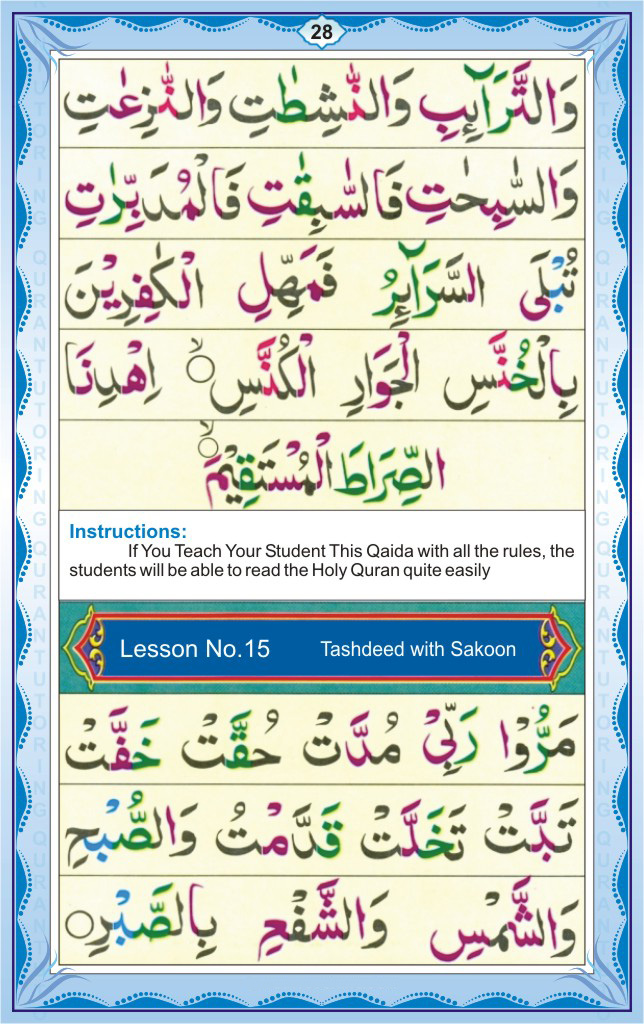 28
وَالتَّرَآئِبِ وَالنّٰشِطٰتِ وَالنّٰزِعٰتِ
وَالسّٰبِحٰتِ فَالسّٰبِقٰتِ فَالْمُدَبِّرٰتِ
تُبْلَى السَّرَآئِرُ فَمَهِّلِ الْكٰفِرِيْنَ
بِالْخُنَّسِ الْجَوَارِ الْكُنَّسِ ۙ اِهْدِنَا
الصِّرَاطَ الْمُسْتَقِيْمَ ۙ
Instructions:
If You Teach Your Student This Qaida with all the rules, the
students will be able to read the Holy Quran quite easily
Lesson No.15 Tashdeed with Sakoon
مَرُّوْا رَبِّيْ مُدَّتْ حُقَّتْ خَفَّتْ
تَبَّتْ تَخَلَّتْ قَدَّمْتُ وَالصُّبْحِ
وَالشَّمْسِ وَالشَّفْعِ بِالصَّبْرِ
QURANTUTORING